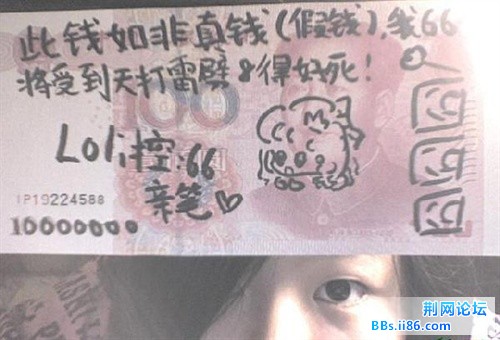 此钱如非真钱(假钱),我66
将受到天打雷劈&得好死!
Loli控:66
亲笔
囧囧囧
100
圆
1P19224588
10000000
荆网论坛
BBs.ii86.com